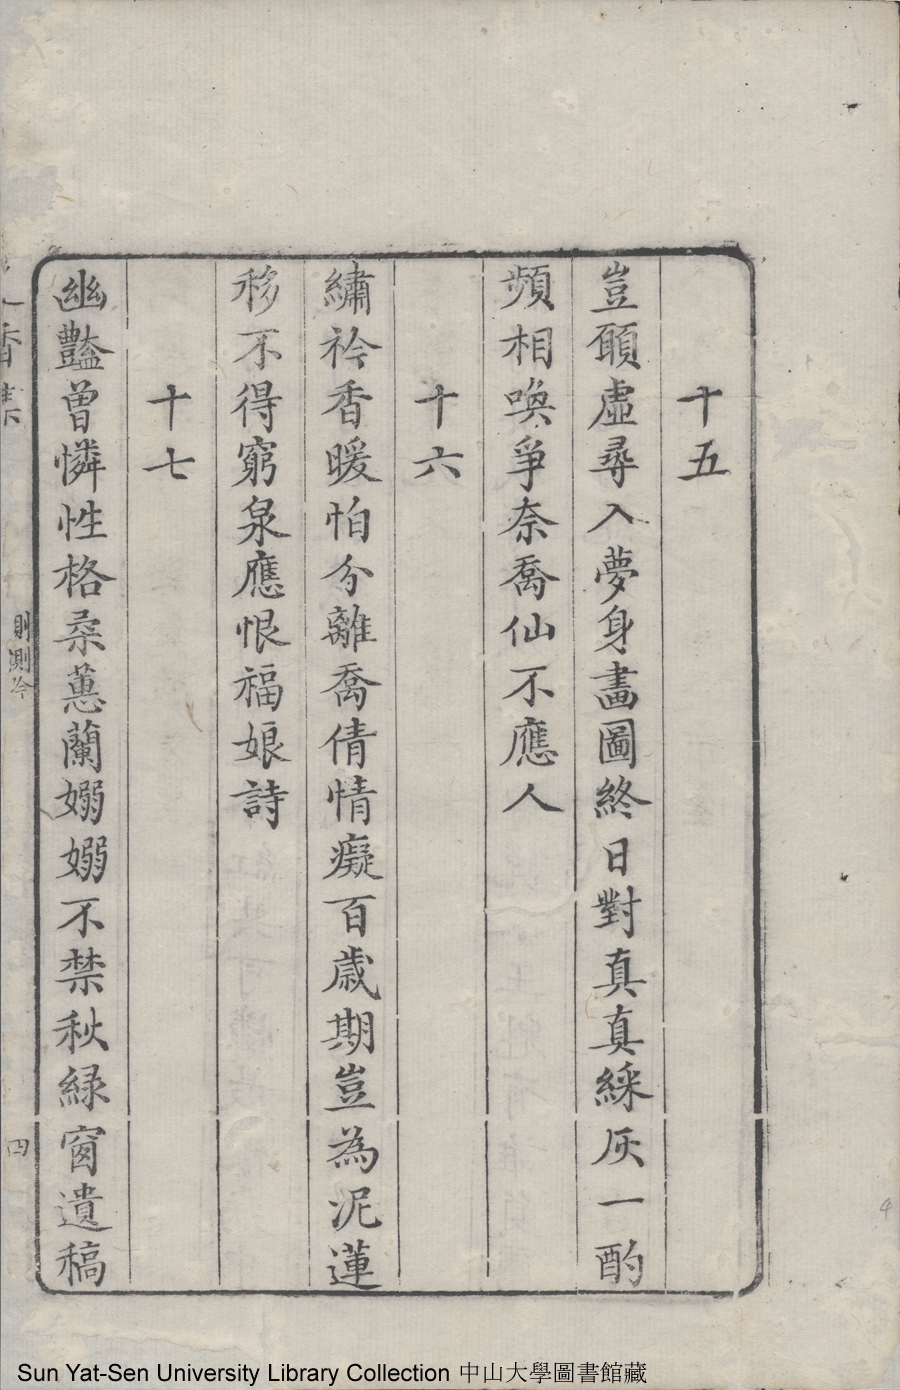 十五
豈願虛尋入夢身畫圖終日對真真綵灰一酌
頻相喚爭奈喬仙不應人
十六
繡衿香暖怕分離喬倩情癡百歲期豈為泥蓮
移不得窮泉應恨福娘詩
十七
幽豔曾憐性格柔蕙蘭嫋嫋不禁秋緑窗遺稿
香集
四
4
Sun Yat-Sen University Library Collection 中山大學圖書館藏